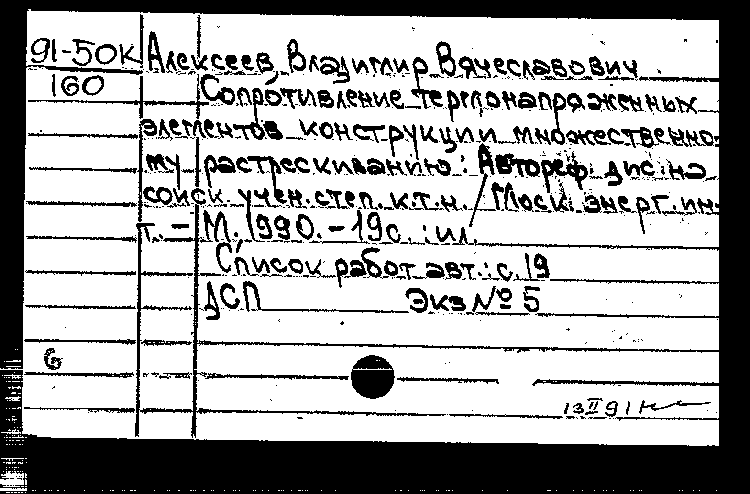 91-50К Алексеев, Владимир Вячеславович.
160 Сопротивление термонапряженных
элементов конструкции множественно-
му растрескиванию: Автореф. дис. на
соиск. учен. степ. к.т.н. / Моск. энерг. ин-
т. - М. 1990. - 19с. : ил.
Список работ авт.: с. 19
ДСП Экз № 5
6
13 II 91